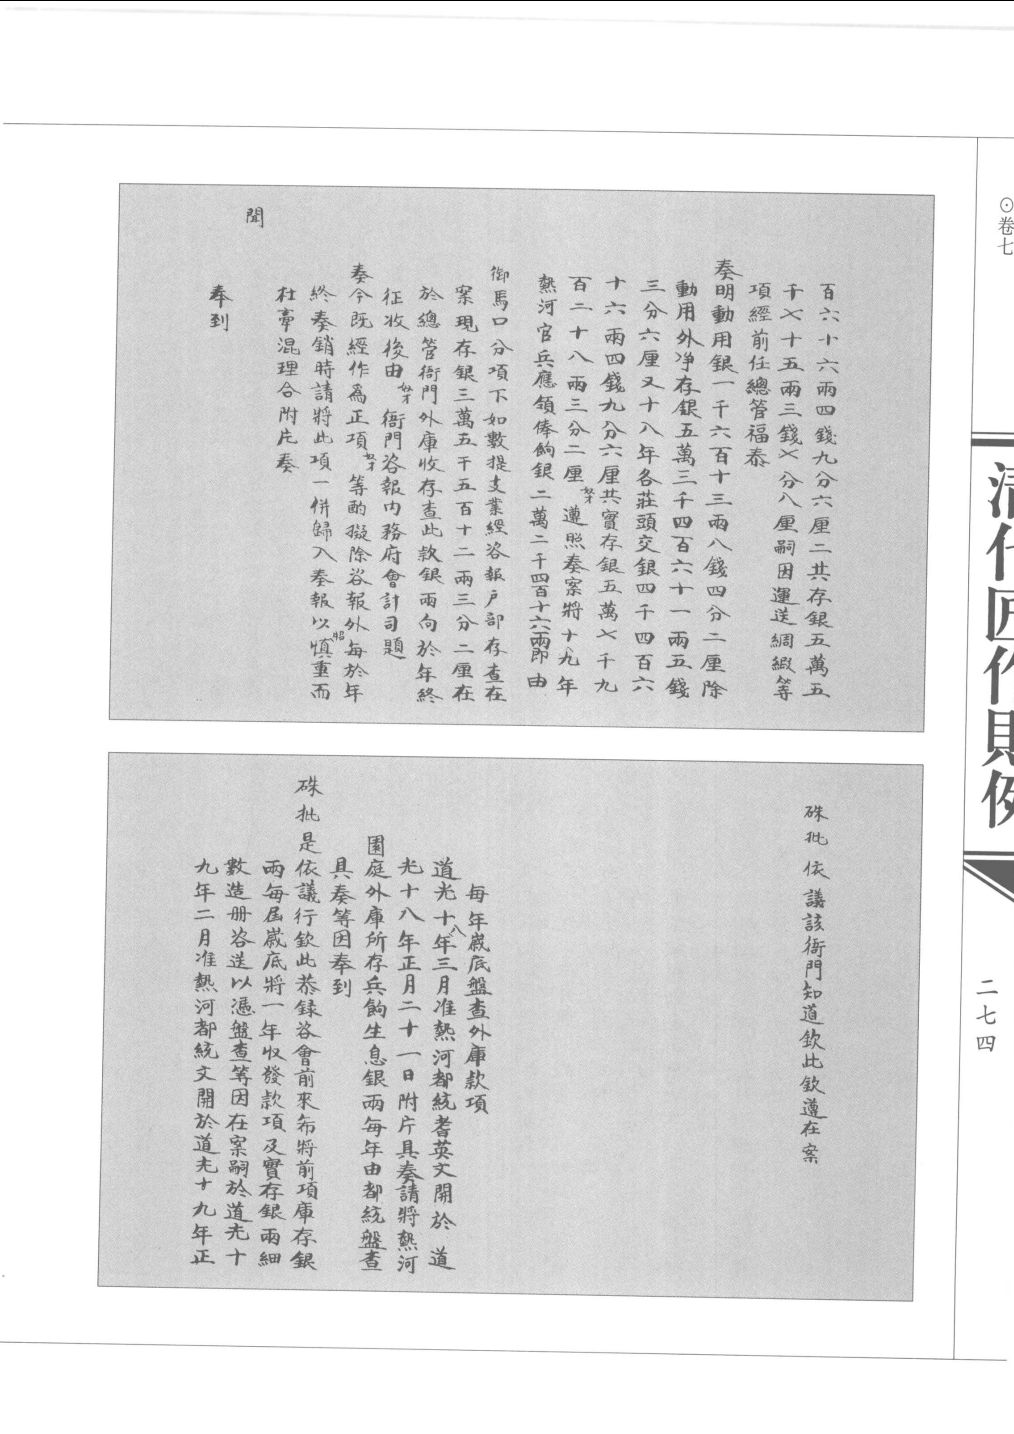 ⊙卷七
清代匠作則例
二七四
百六十六兩四錢九分六厘二共存銀五萬五
千七十五兩三錢七分八厘嗣因運送綢緞等
項經前任總管福泰
奏明動用銀一千六百十三兩八錢四分二厘除
動用外净存銀五萬三千四百六十一兩五錢
三分六厘又十八年各莊頭交銀四千四百六
十六兩四錢九分六厘共實存銀五萬七千九
百二十八兩三分二厘奴才遵照奏案將十九年
熱河官兵應領俸餉銀二萬二千四百十六兩即由
御馬口分項下如數提支業經咨報户部存查在
案現存銀三萬五千五百十二兩三分二厘在
於總管衙門外庫收存查此款銀兩向於年終
征收後由奴才衙門咨報內務府會計司題
奏今既經作爲正項奴才等酌擬除咨報外每於年
終奏銷時請將此項一併歸入奏報以昭慎重而
杜牽混理合附片奏
聞
奉到
硃批依議該衙門知道欽此欽遵在案
每年嵗底盤查外庫款項
道光十八年三月准熱河都統耆英文開於道
光十八年正月二十一日附片具奏請將熱河
園庭外庫所存兵餉生息銀兩每年由都統盤查
具奏等因奉到
硃批是依議行欽此恭録咨會前來希將前項庫存銀
兩每屆嵗底將一年收發款項及實存銀兩細
數造册咨送以憑盤查等因在案嗣於道光十
九年二月准熱河都統文開於道光十九年正